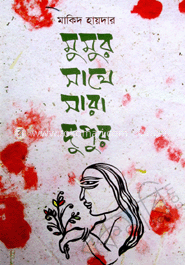 মাকিদ হায়দার
মুমুর
সাথে
সারা
দুপুর